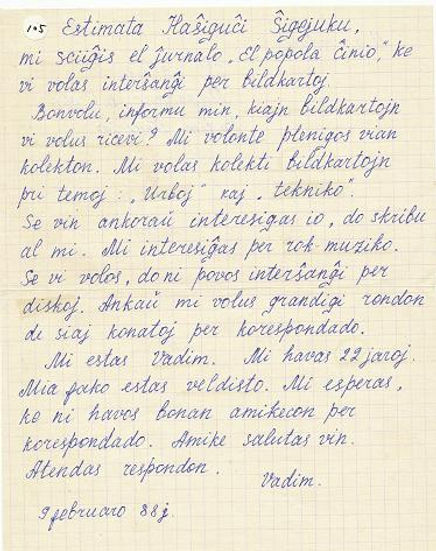 105 Estimata Haŝiguĉi Ŝigejuku,
mi sciiĝis el ĵurnalo „El popola ĉinio", ke
vi volas interŝanĝi per bildkartoj.
Bonvolu, informu min, kiajn bildkartojn
vi volus ricevi? Mi volonte plenigos vian
kolekton. Mi volas kolekti bildkartojn
pri temoj: „Urboj" kaj „tekniko".
Se vin ankoraŭ interesigas io, do skribu
al mi. Mi interesiĝas per rok-muziko.
Se vi volos, do ni povos interŝanĝi per
diskoj. Ankaŭ mi volus grandigi rondon
de siaj konatoj per korespondado.
Mi estas Vadim. Mi havas 22 jaroj.
Mia fako estas veldisto. Mi esperas,
ke ni havos bonan amikecon per
korespondado. Amike salutas vin.
Atendas respondon.
Vadim.
9 februaro 88 j.